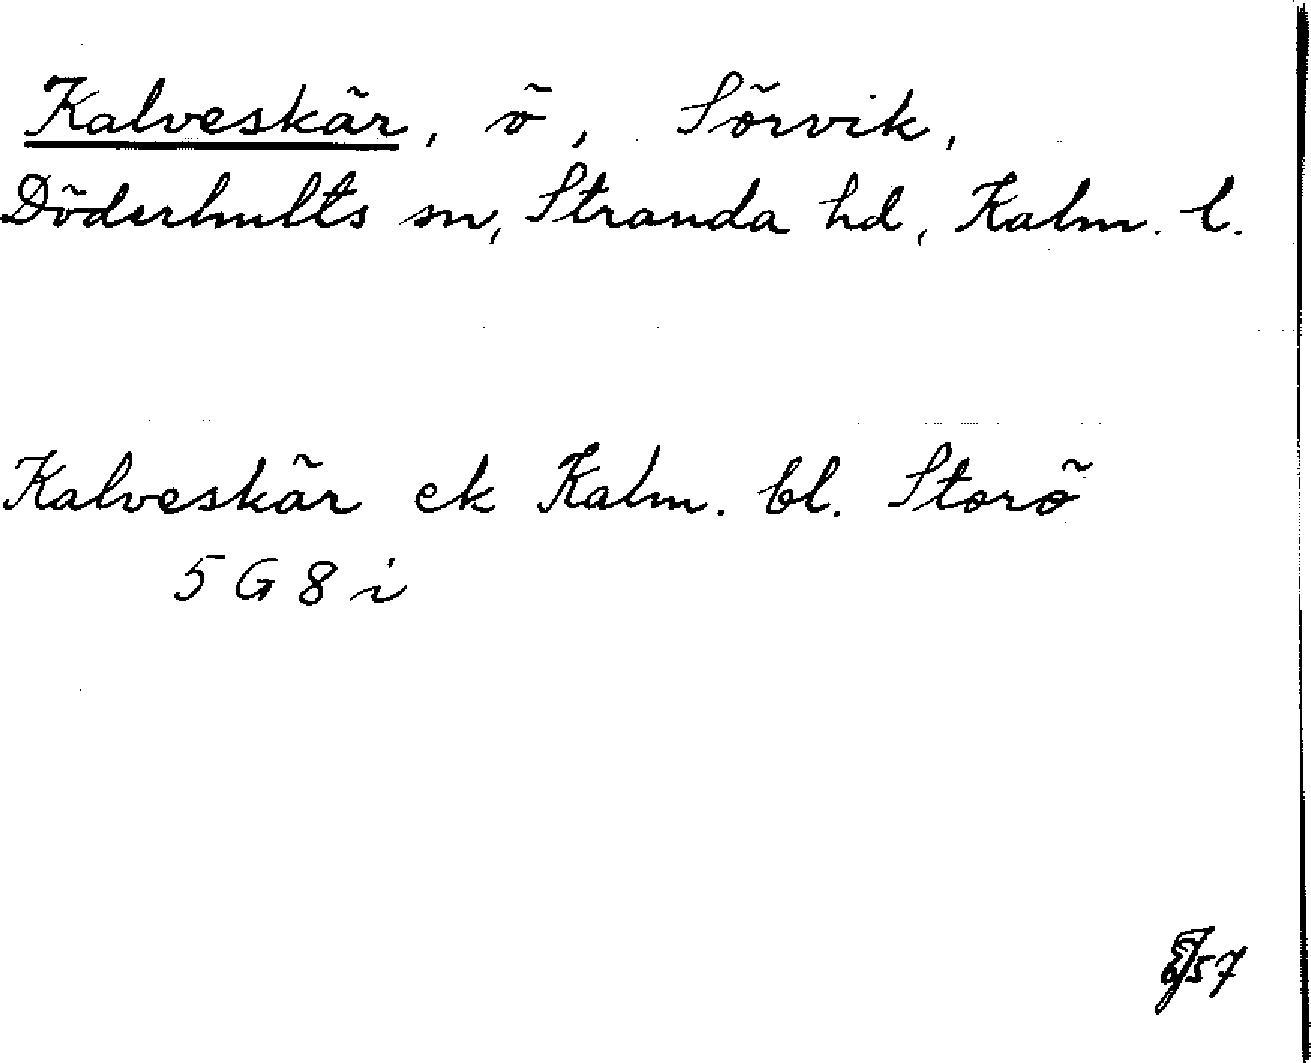 Kalveskär, ö, Sörvik,
Döderhults sn, Stranda hd, Kalm. l.
Kalveskär ek Kalm. bl. Storö
5 G 8 i
57